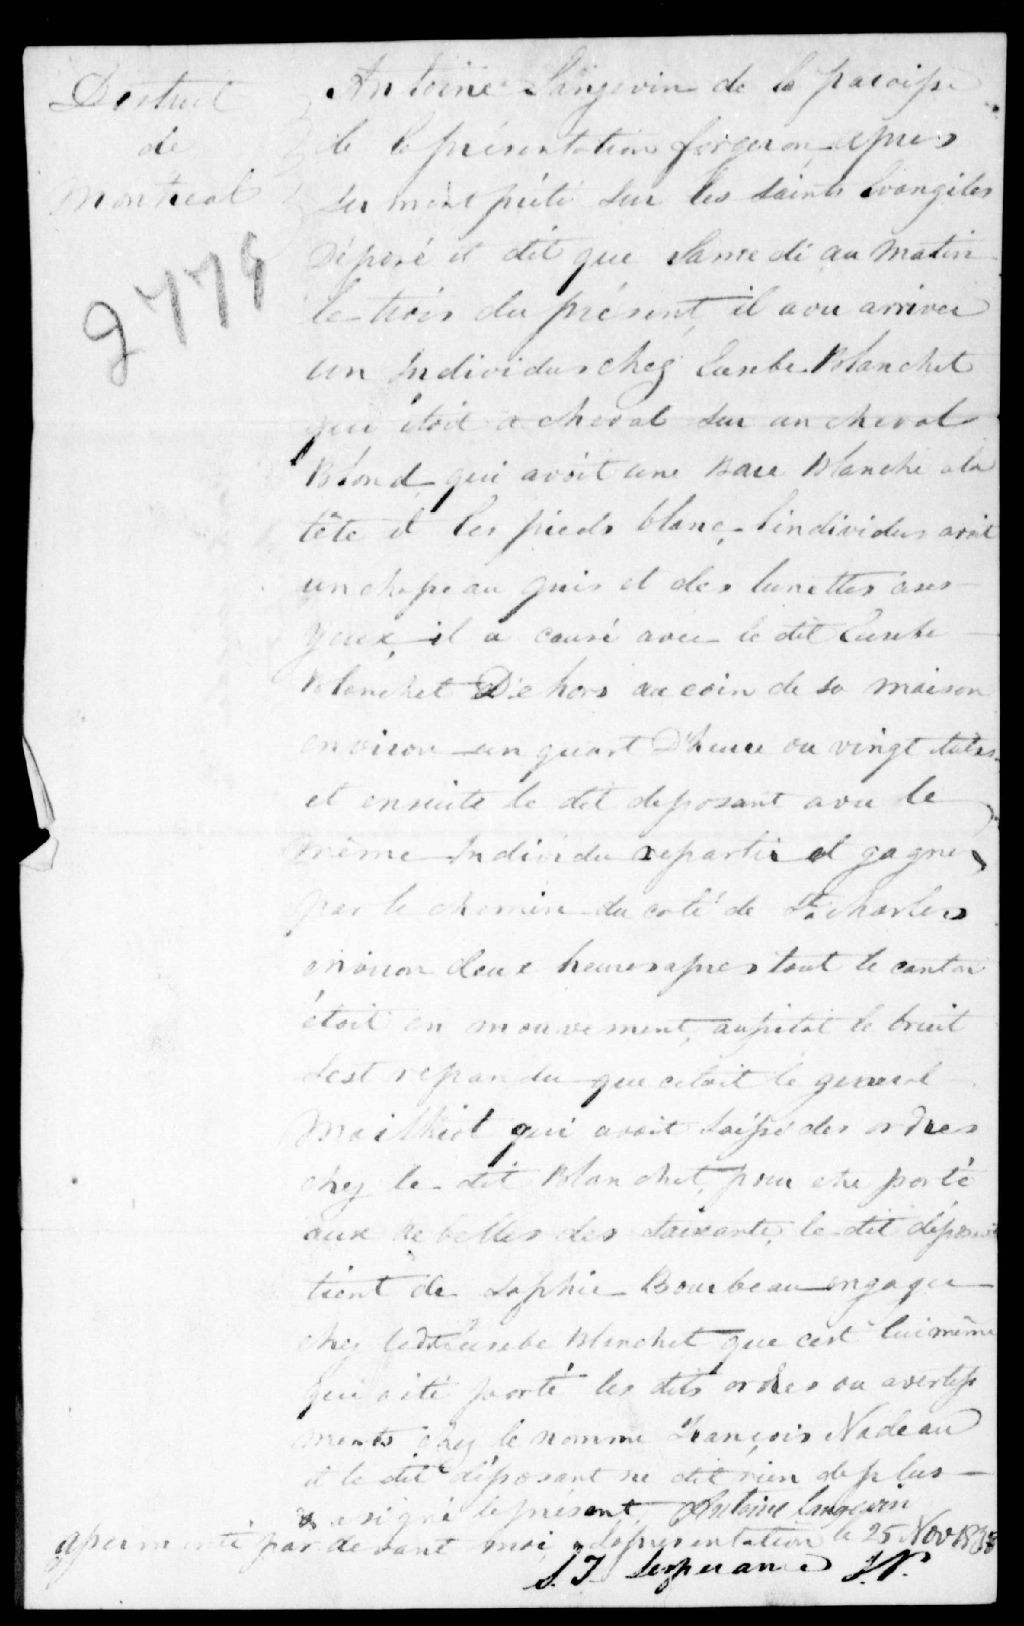 District
de
Montreal
2779
Antoine Langevin de la paroisse
de la présentation forgeron apres
serment prêté sur les saints Evangiles
Déposé et dit que Samedi au matin
le trois du présent, il a vu arriver
un Individus chez Eusebe Blanchet
qui étoit a cheval sur un cheval
Blond qui avoit une Bare Blanche a la
tête et les pieds blanc, l'individus avoit
un chapeau gris et des lunettes a ses
yeux, il a causé avec le dit Eusebe
Blanchet Dehors au coin de sa maison
environ un quart D'heure ou vingt
et ensuite le dit deposant a vu le
même Individu repartir et gagner
par le chemin du coté de St. Charles
environ deux heures apres tout le canton
étoit en mouvement, aussitot le bruit
s'est repandu que cetoit le general
Mailhiot qui avoit laissé des ordres
chez le dit Blanchet, pour etre porté
aux Rebelles des Soixante, le dit déposant
tient de Sophie Bourbeau engagée
chez ledit Eusebe Blanchet que cest lui même
qui a été porté les dits ordres ou avertisse
ments chez le nommé François Nadeau
et le dit déposant ne dit rien de plus
& a signé le présent, Antoine Langevin
assermenté par devant moi, Lapresentation le 25 Nov 1838
L. T. Lesperance J.P.